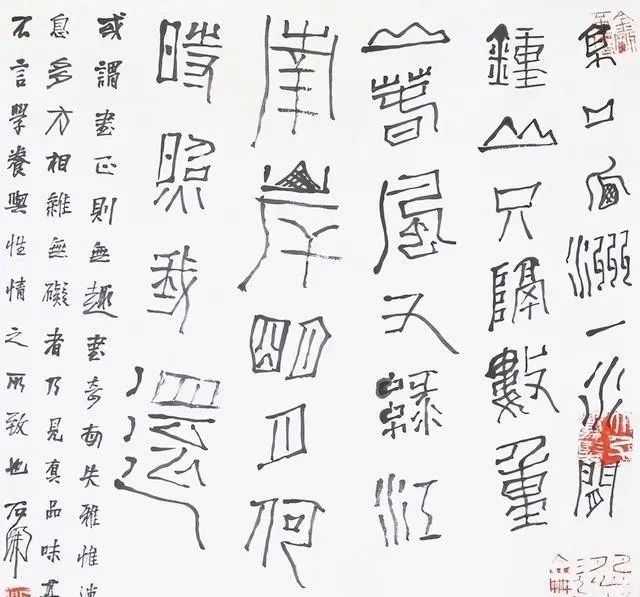 京口瓜洲一水間
鍾山只隔數重
山春風又綠江
南岸明月何
時照我還
或謂書正則無趣書奇而失雅惟
息多方相雜無礙者乃見真品味其
不言學養與性情之所致也石開